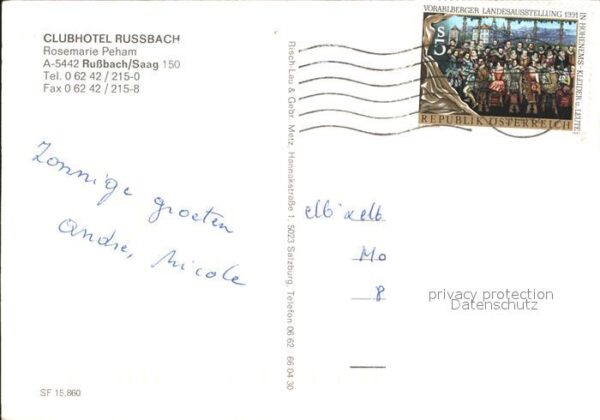 CLUBHOTEL RUSSBACH
Rosemarie Peham
A-5442 Rußbach/Saag 150
Tel. 0 62 42 / 215-0
Fax 0 62 42 / 215-8
Zonnige groeten
Andre, Nicole
SF 15.860
Risch-Lau & Gebr. Metz, Hannakstraße 1, 5023 Salzburg, Telefon 06 62 66 04 30
VORARLBERGER LANDESAUSSTELLUNG 1991
IN HOHENEMS - KLEIDER u. LEUTE
S 5
REPUBLIK ÖSTERREICH
Mo
8
privacy protection
Datenschutz